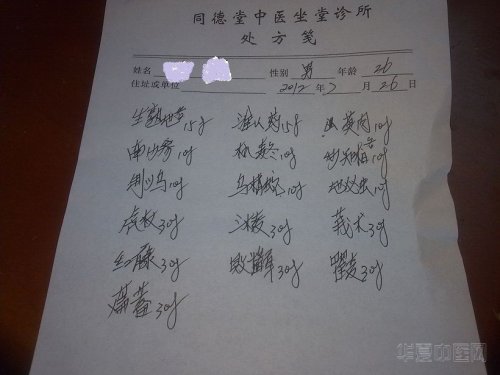 同德堂中医坐堂诊所
处方笺
姓名 性别 男 年龄 26
住址或单位 2012年7月26日
生熟地各15g 淮山药15g 山萸肉10g
南沙参10g 杭麦冬10g 炒知柏各10g
制川乌10g 乌梢蛇10g 地鳖虫10g
虎杖30g 三棱30g 莪术30g
红藤30g 败酱草30g 瞿麦30g
萹蓄30g
华夏中医网